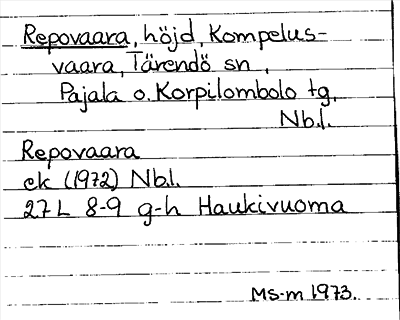 Repovaara, höjd, Kompelus-
vaara, Tärendö sn,
Pajala o. Korpilombolo tg,
Nb.l.
Repovaara
ek (1972) Nb.l.
27 L 8-9 g-h Haukivuoma
Ms-m 1973.